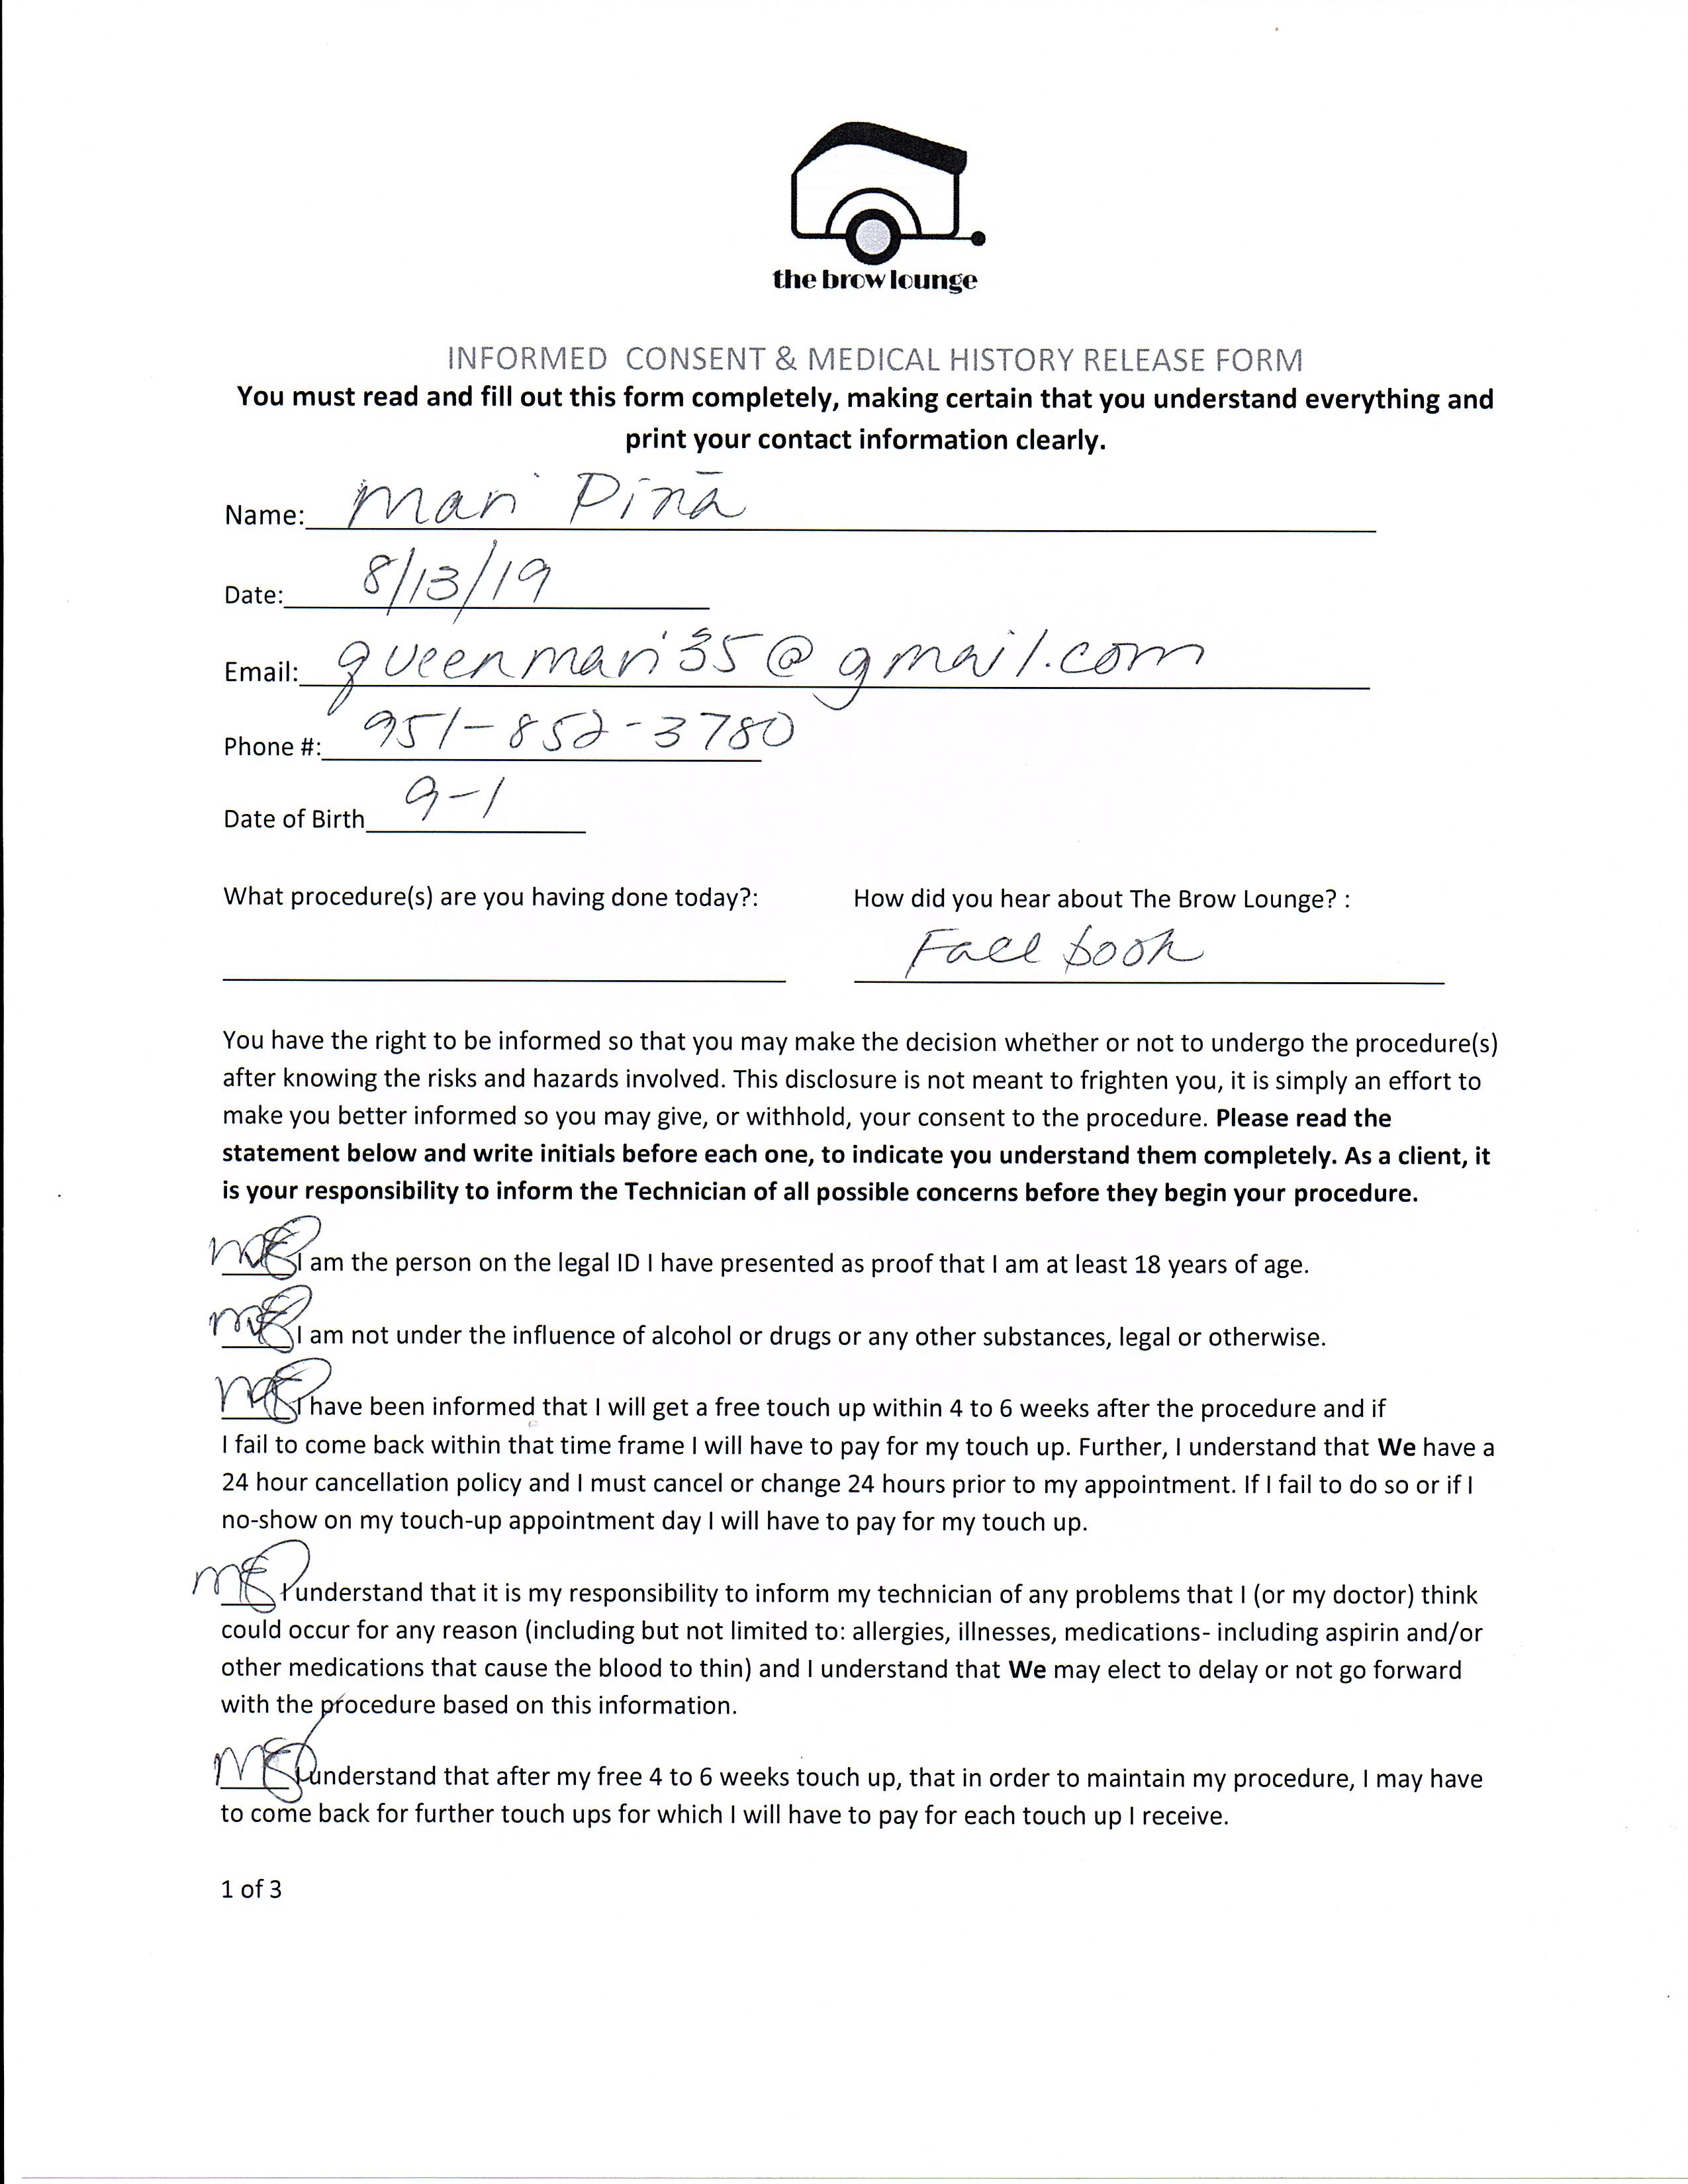 the brow lounge
INFORMED CONSENT & MEDICAL HISTORY RELEASE FORM
You must read and fill out this form completely, making certain that you understand everything and
print your contact information clearly.
Name: Mari Piña
Date: 8/13/19
Email: queenmari35@gmail.com
Phone #: 951-852-3780
Date of Birth 9-1
What procedure(s) are you having done today?: How did you hear about The Brow Lounge? :
Facebook
You have the right to be informed so that you may make the decision whether or not to undergo the procedure(s)
after knowing the risks and hazards involved. This disclosure is not meant to frighten you, it is simply an effort to
make you better informed so you may give, or withhold, your consent to the procedure. Please read the
statement below and write initials before each one, to indicate you understand them completely. As a client, it
is your responsibility to inform the Technician of all possible concerns before they begin your procedure.
I am the person on the legal ID I have presented as proof that I am at least 18 years of age.
I am not under the influence of alcohol or drugs or any other substances, legal or otherwise.
I have been informed that I will get a free touch up within 4 to 6 weeks after the procedure and if
I fail to come back within that time frame I will have to pay for my touch up. Further, I understand that We have a
24 hour cancellation policy and I must cancel or change 24 hours prior to my appointment. If I fail to do so or if I
no-show on my touch-up appointment day I will have to pay for my touch up.
I understand that it is my responsibility to inform my technician of any problems that I (or my doctor) think
could occur for any reason (including but not limited to: allergies, illnesses, medications- including aspirin and/or
other medications that cause the blood to thin) and I understand that We may elect to delay or not go forward
with the procedure based on this information.
I understand that after my free 4 to 6 weeks touch up, that in order to maintain my procedure, I may have
to come back for further touch ups for which I will have to pay for each touch up I receive.
1 of 3